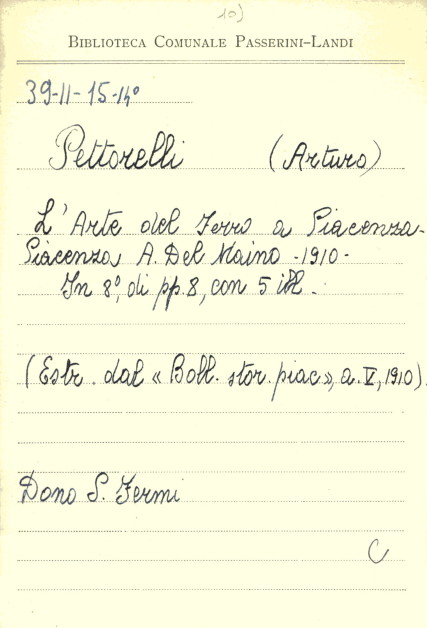 10)
BIBLIOTECA COMUNALE PASSERINI-LANDI
39-11-15-14°
Pettorelli (Arturo)
L'Arte del Ferro a Piacenza-
Piacenza A. Del Maino -1910-
In 8°, di pp. 8, con 5 ill.
(Estr. dal « Boll. stor. piac», a. V, 1910).
Dono S. Fermi
C